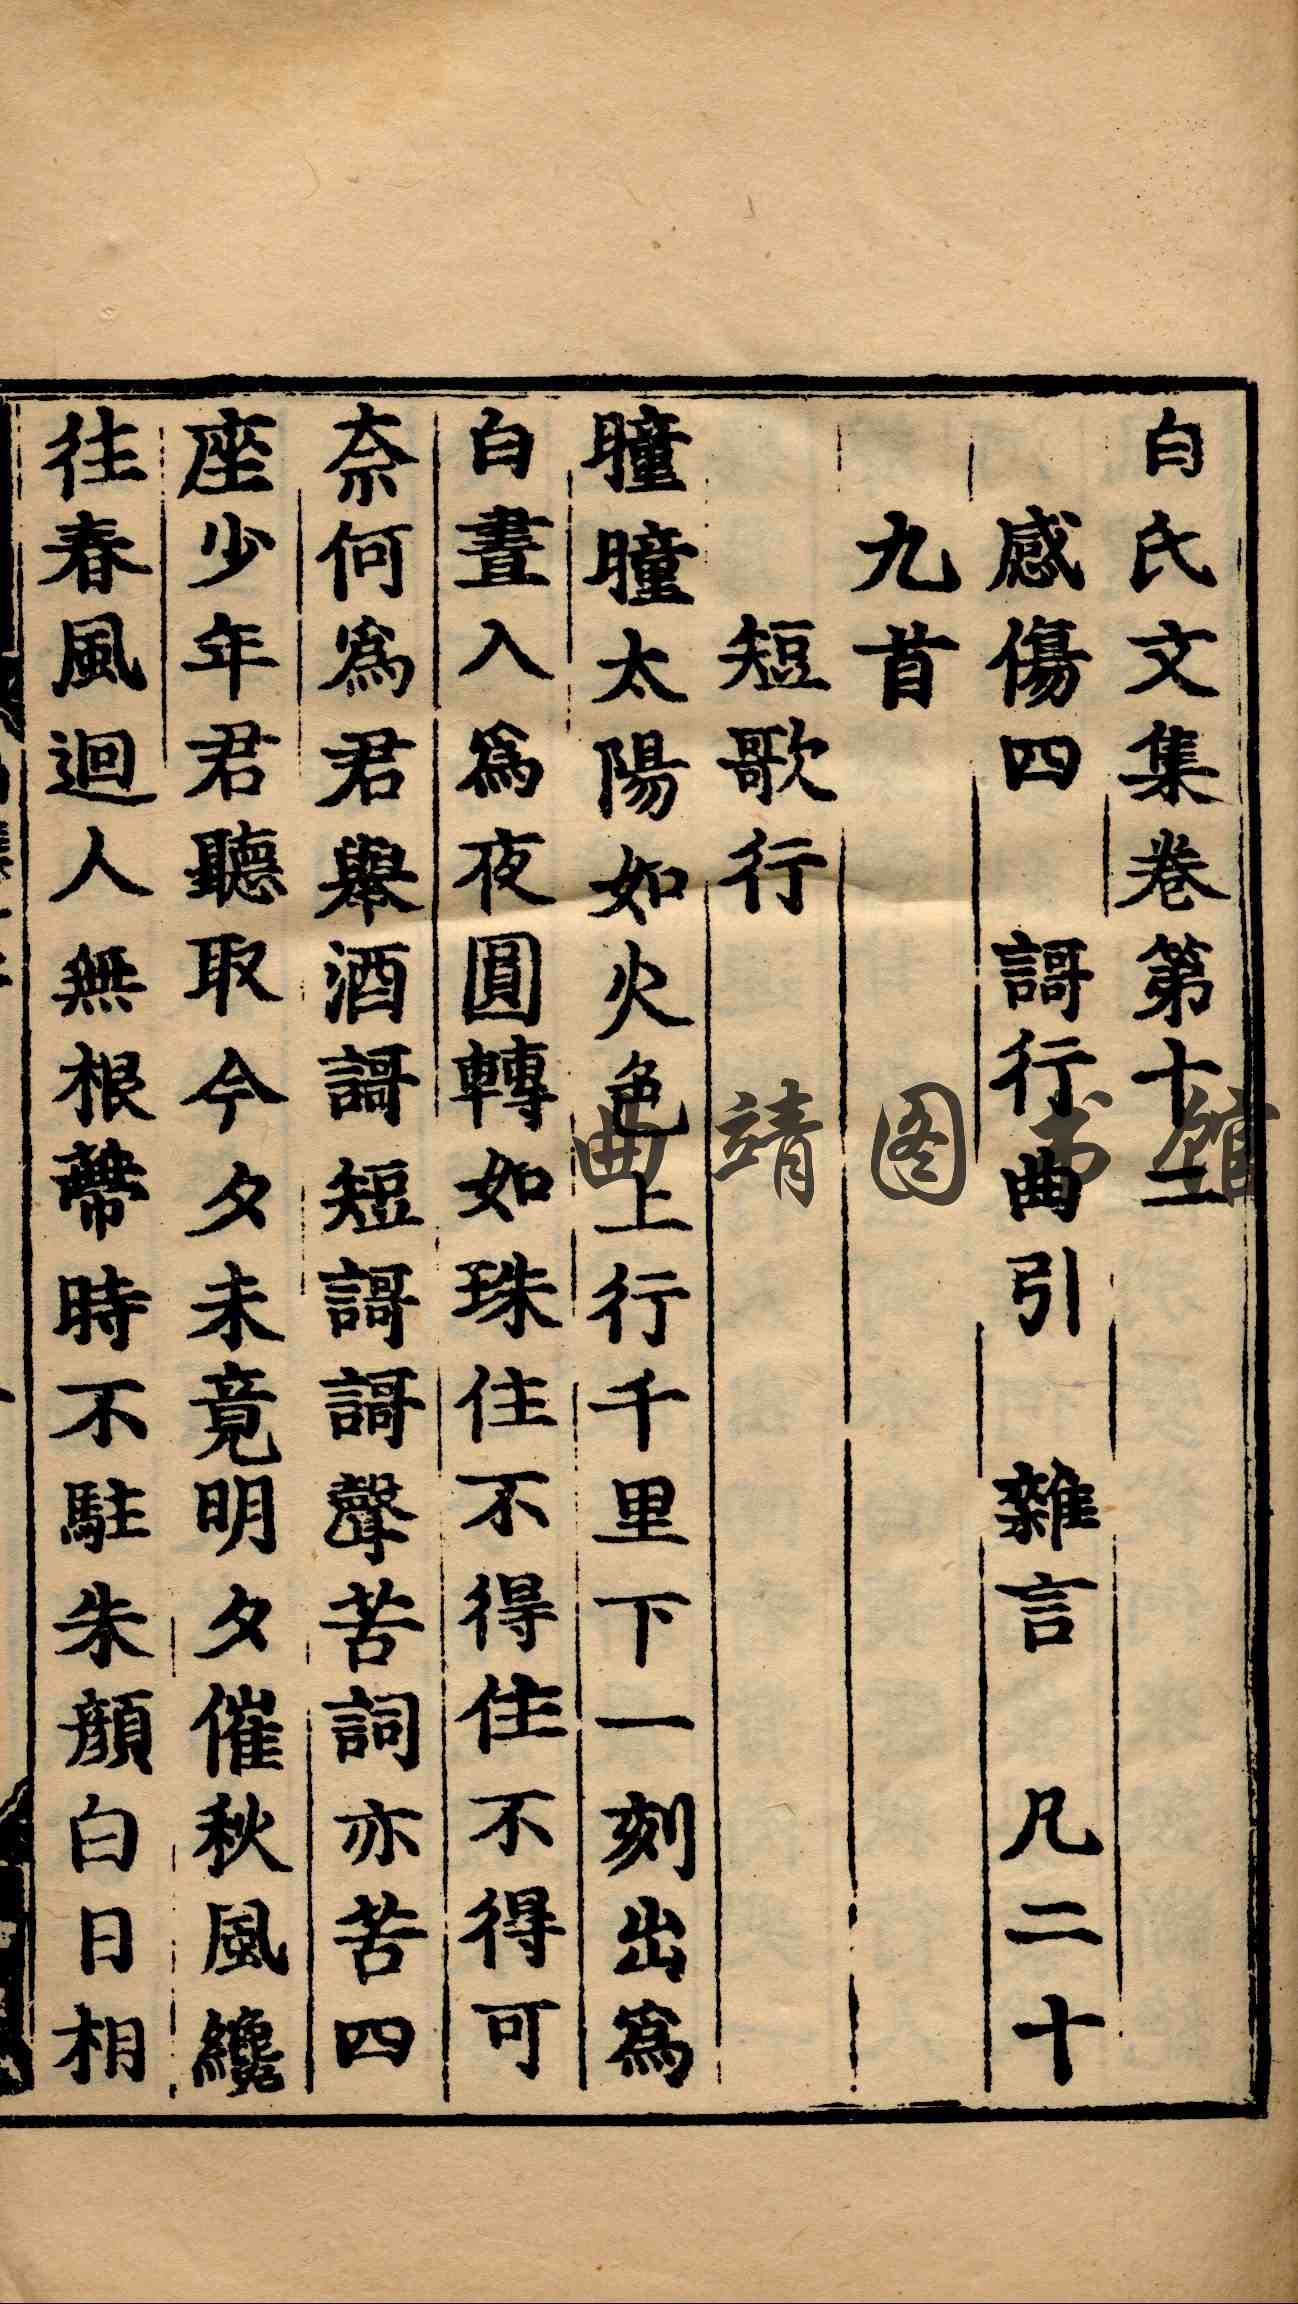 白氏文集卷第十二
感傷四　謌行曲引　雜言　凡二十
九首
短歌行
曈曈太陽如火色上行千里下一刻出爲
白晝入爲夜圓轉如珠住不得住不得可
奈何爲君舉酒謌短謌謌聲苦詞亦苦四
座少年君聽取今夕未竟明夕催秋風纔
往春風迴人無根蔕時不駐朱顔白日相
曲靖图书馆